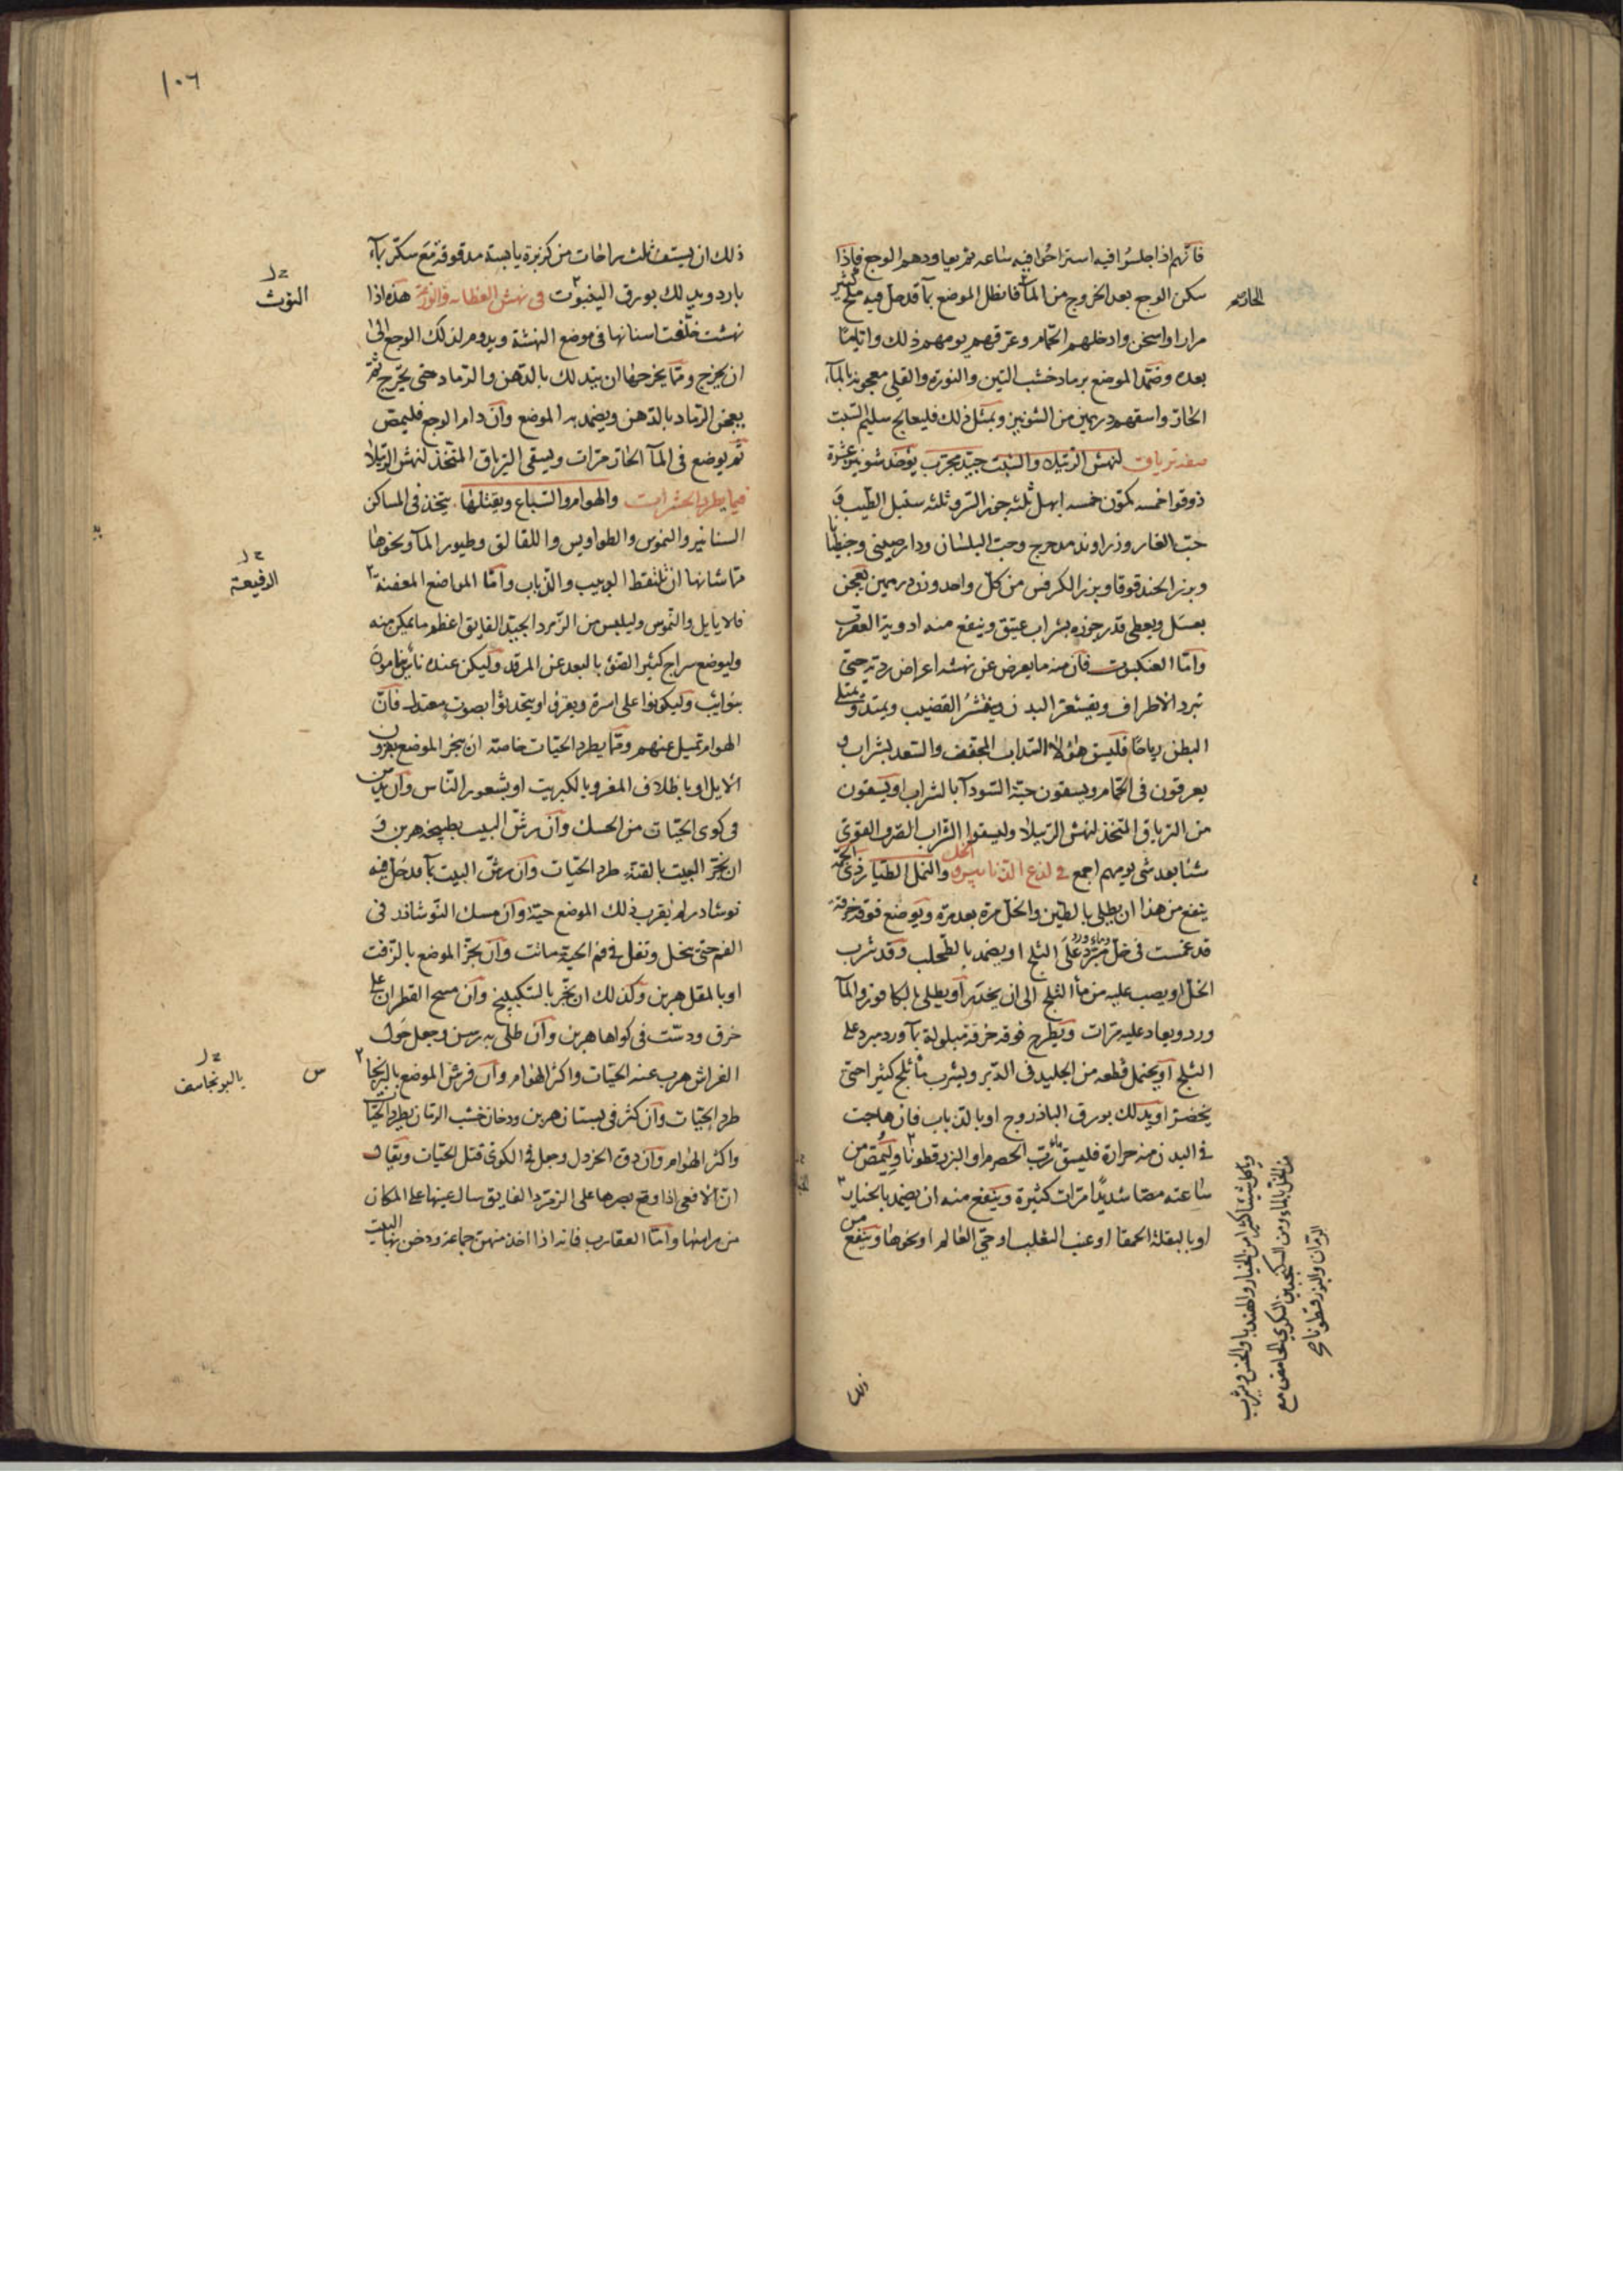 فانهم اذا جلسوا فيه استراحوا فيه ساعه ثم يعاودهم الوجع فاذا
سكن الوجع بعد الخروج من المآ فانطل الموضع بمآ قد حل فيه ملح كثير
الحار صح
مرارا واسخن وادخلهم الحمام وعرقهم يومهم ذلك واياما
بعده وضمد الموضع برماد خشب التين والنورة والقلى معجونه بالمآ
الحار واسقهم درهمين من الشونيز وبمثل ذلك فليعالج سليم الشبث
صفه ترياق لنهش الرتيلا والشبث جيد مجرب يوخذ شونيز عشرة
دوقوا خمسه كمون خمسه ابهل ثلثه جوز السرو ثلثه سنبل الطيب و
حب الغار وزراوند مدحرج وحب البلسان ودارصينى وجنطيانا
وبزر الحندقوقا وبزر الكرفس من كل واحد وزن درهمين يعجن
بعسل ويعطى قدر جوزه بشراب عتيق وينفع منه ادوية العقرب
واما العنكبوت فان منه ما يعرض عن نهشه اعراض ردية حتى
تبرد الاطراف ويقشعر البدن وينتشر القضيب ويمتد ويمتلى
البطن رياحا فليسق هؤلاء السداب المجفف والسعد بشراب و
يعرقون فى الحمام ويسقون حبة السودآ بالشراب او يسقون
من الترياق المتخذ لنهش الرتيلا وليسقوا الشراب الصرف القوى
شيا بعد شى يومهم اجمع فى لذع الزنابير والنحل والنمل الطيار ذى الحمة
ينفع من هذا ان يطلى بالطين والخل مرة بعد مرة ويوضع فوقه خرقة
قد غمست فى خل وماء ورد مبرد على الثلج او يضمد بالطحلب وقد شرب
الخل او يصب عليه من مآ الثلج الى ان يخدر او يطلى بالكافور والمآ
ورد ويعاد عليه مرات ويطرح فوقه خرقة مبلولة بمآ ورد مبرد على
الثلج او يحتمل قطعه من الجليد فى الدبر ويشرب مآ ثلج كثيرا حتى
يخضر او يدلك بورق الباذروج او بالذباب فان هاجت
فى البدن منه حرارة فليسق ماء رب الحصرم او البزرقطونا وليمص من
ساعته مصا شديدا مرات كثيرة وينفع منه ان يضمد بالخبازى
او بالبقلة الحمقا او عنب الثعلب او حى العالم او نحوها وينفع من
وياكل شيئا كثيرا من الخيار والهندبا والخس ويشرب
من الخل بالماء ومن السكنجبين السكرى الحامض مع
الرمان والبزرقطونا صح
ذلك
١٠٦
ذلك ان يستف ثلث راحات من كزبرة يابسة مدقوقة مع سكر بمآ
بارد ويدلك بورق الينبوت فى نهش العظاية والوزغة هذه اذا
التوث
نهشت خلفت اسنانها فى موضع النهشة ويدوم لذلك الوجع الى
ان يخرج ومما يخرجها ان يدلك بالدهن والرماد حتى يخرج ثم
يعجن الرماد بالدهن ويضمد به الموضع وان دام الوجع فليمص
ثم يوضع فى المآ الحار مرات ويسقى الترياق المتخذ لنهش الرتيلا
فيما يطرد الحشرات والهوام والسباع ويقتلها يتخذ فى المساكن
السنانير والنموس والطواويس واللقالق وطيور المآ ونحوها
مما شانها ان تلتقط الدبيب والذباب واما المواضع المعفنة
الرفيعة
فالايايل والنموس وليلبس من الزمرد الجيد الفايق اعظم ما يمكن منه
وليوضع سراج كثير الضوء بالبعد عن المرقد وليكن عنده ناس ينامون
بنوايب وليكونوا على اسرة ويعزف او يتحدثوا بصوت معتدل فان
الهوام تميل عنهم ومما يطرد الحيات خاصة ان يبخر الموضع بقرون
الايل او باظلاف المعز وبالكبريت او بشعور الناس وان
فى كوى الحيات من الحسك وان رش البيت بطبيخه هربن و
ان بخر البيت بالقنة طرد الحيات وان رش البيت بمآ قد حل فيه
نوشادر لم يقرب ذلك الموضع حية وان مسك النوشادر فى
الفم حتى ينحل وتفل فى فم الحية ماتت وان بخر الموضع بالزفت
او بالمقل هربن وكذلك ان بخر بالسكبينج وان مسح القطران على
خرق ودست فى كواها هربن وان طلى به رسن وجعل حول
الفراش هرب عنه الحيات واكثر الهوام وان فرش الموضع بالبرنجا
س
بالبونجاسف
طرد الحيات وان كثر فى بستان هربن ودخان خشب الرمان يطرد الحيات
واكثر الهوام وان دق الخردل وجعل فى الكوى قتل الحيات ويقال
ان الافعى اذا وقع بصرها على الزمرد الفايق سال عينها على المكان
من راسها واما العقارب فانه اذا اخذ منهن جماعة ودخن بها البيت